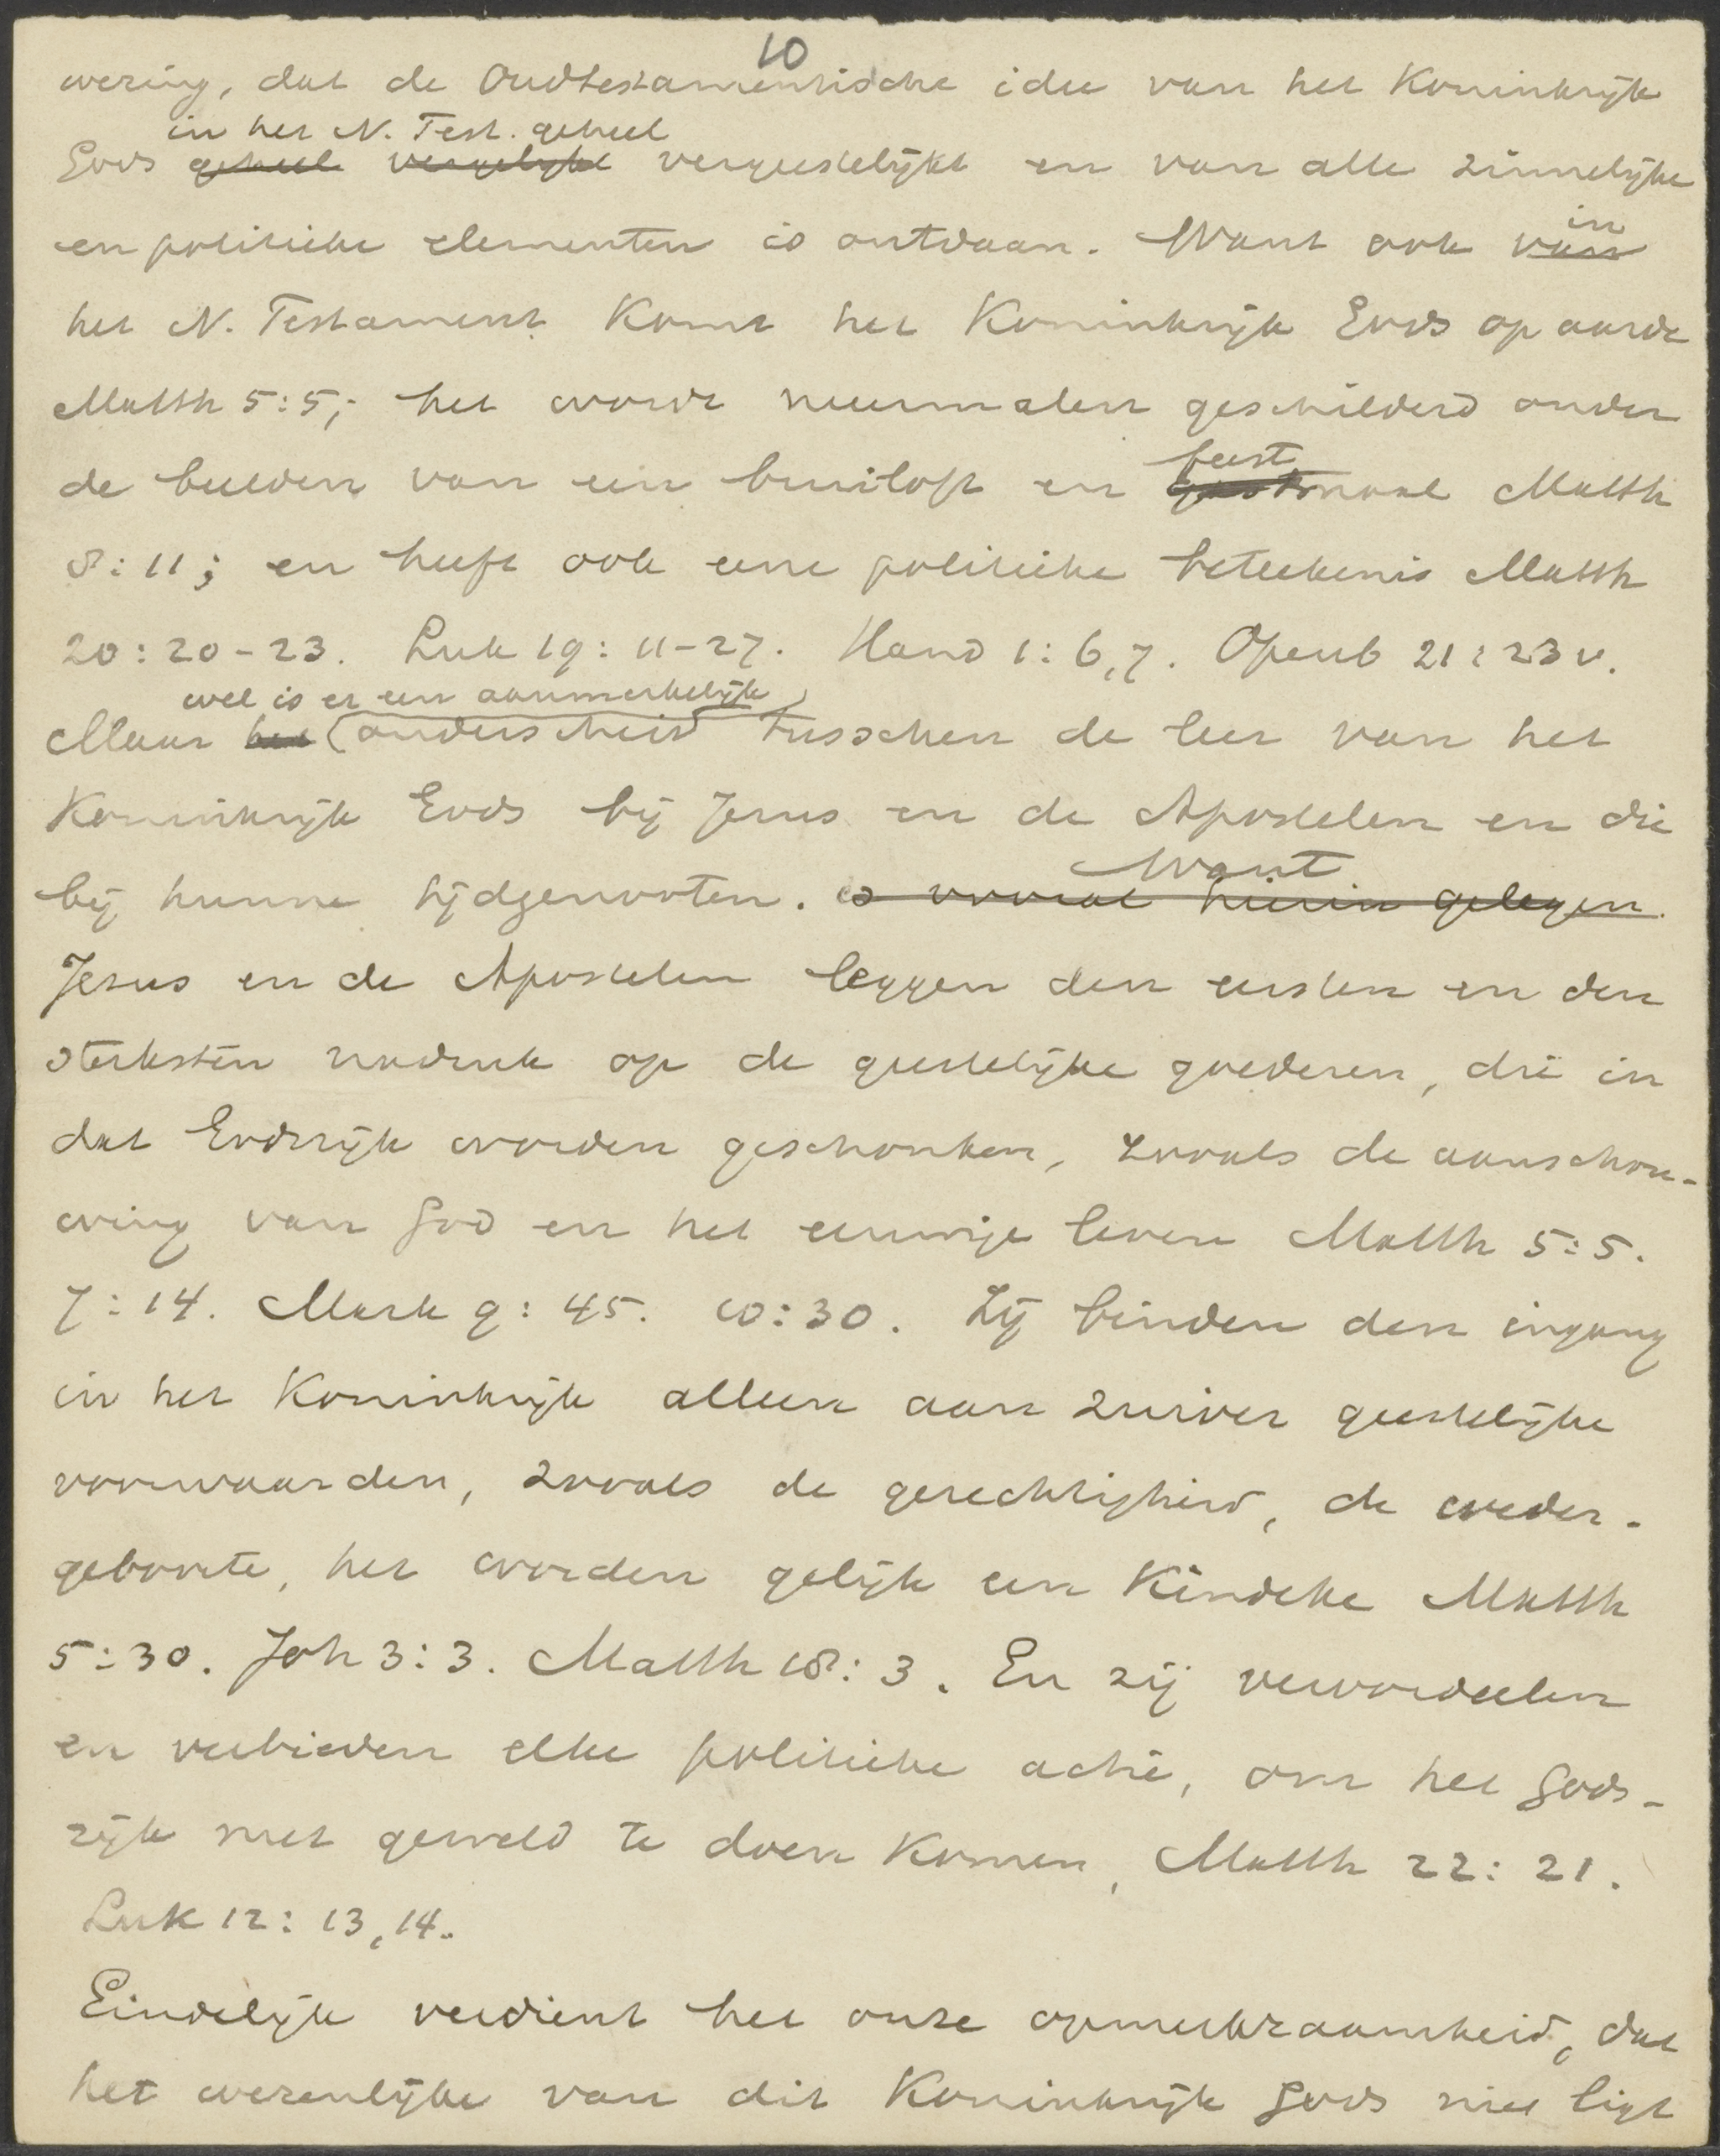 10
wering, dat de Oudtestamentische idee van het Koninkrijk
in het N. Test. geheel
Gods geheel vergelijkt vergeestelijkt en van alle zinnelijke
en politieke elementen is ontdaan. Want ook van in
het N. Testament komt het Koninkrijk Gods op aarde
Matth 5:5; het wordt meermalen geschilderd onder
de beelden van een bruiloft en feest
gastmaal Matth
8:11; en heeft ook eene politieke beteekenis Matth
20:20-23. Luk 19:11-27. Hand 1:6,7. Openb 21:23 v.
wel is er een aanmerkelijk
Maar het onderscheid tusschen de leer van het
Koninkrijk Gods bij Jezus en de Apostelen en die
bij hunne tijdgenooten. is vooral hierin gelegen.
Want
Jezus en de Apostelen leggen den eersten en den
sterksten nadruk op de geestelijke goederen, die in
dat Godsrijk worden geschonken, zooals de aanschou-
wing van God en het eeuwige leven Matth 5:5.
7:14. Mark 9:45. 10:30. Zij binden den ingang
in het Koninkrijk alleen aan zuiver geestelijke
voorwaarden, zooals de gerechtigheid, de weder-
geboorte, het worden gelijk een kindeke Matth
5:30. Joh 3:3. Matth 18:3. En zij veroordeelen
en verbieden elke politieke actie, om het Gods-
rijk met geweld te doen komen, Matth 22:21.
Luk 12:13,14.
Eindelijk verdient het onze opmerkzaamheid, dat
het wezenlijke van dit Koninkrijk Gods niet ligt